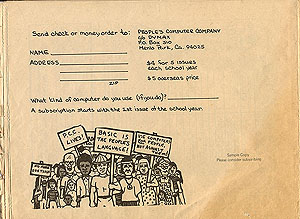 Send check or money order to: PEOPLE'S COMPUTER COMPANY
c/o DYMAX
P.O. Box 310
Menlo Park, Ca. 94025
NAME
ADDRESS
$4 for 5 issues
each school year
$5 overseas price
ZIP
What kind of computer do you use (if you do)?
A subscription starts with the 1st issue of the school year.
P.C.C. LIVES!
BASIC IS
THE PEOPLE'S
LANGUAGE!
USE COMPUTERS
FOR PEOPLE,
NOT AGAINST
Sample Copy
Please consider subscribing